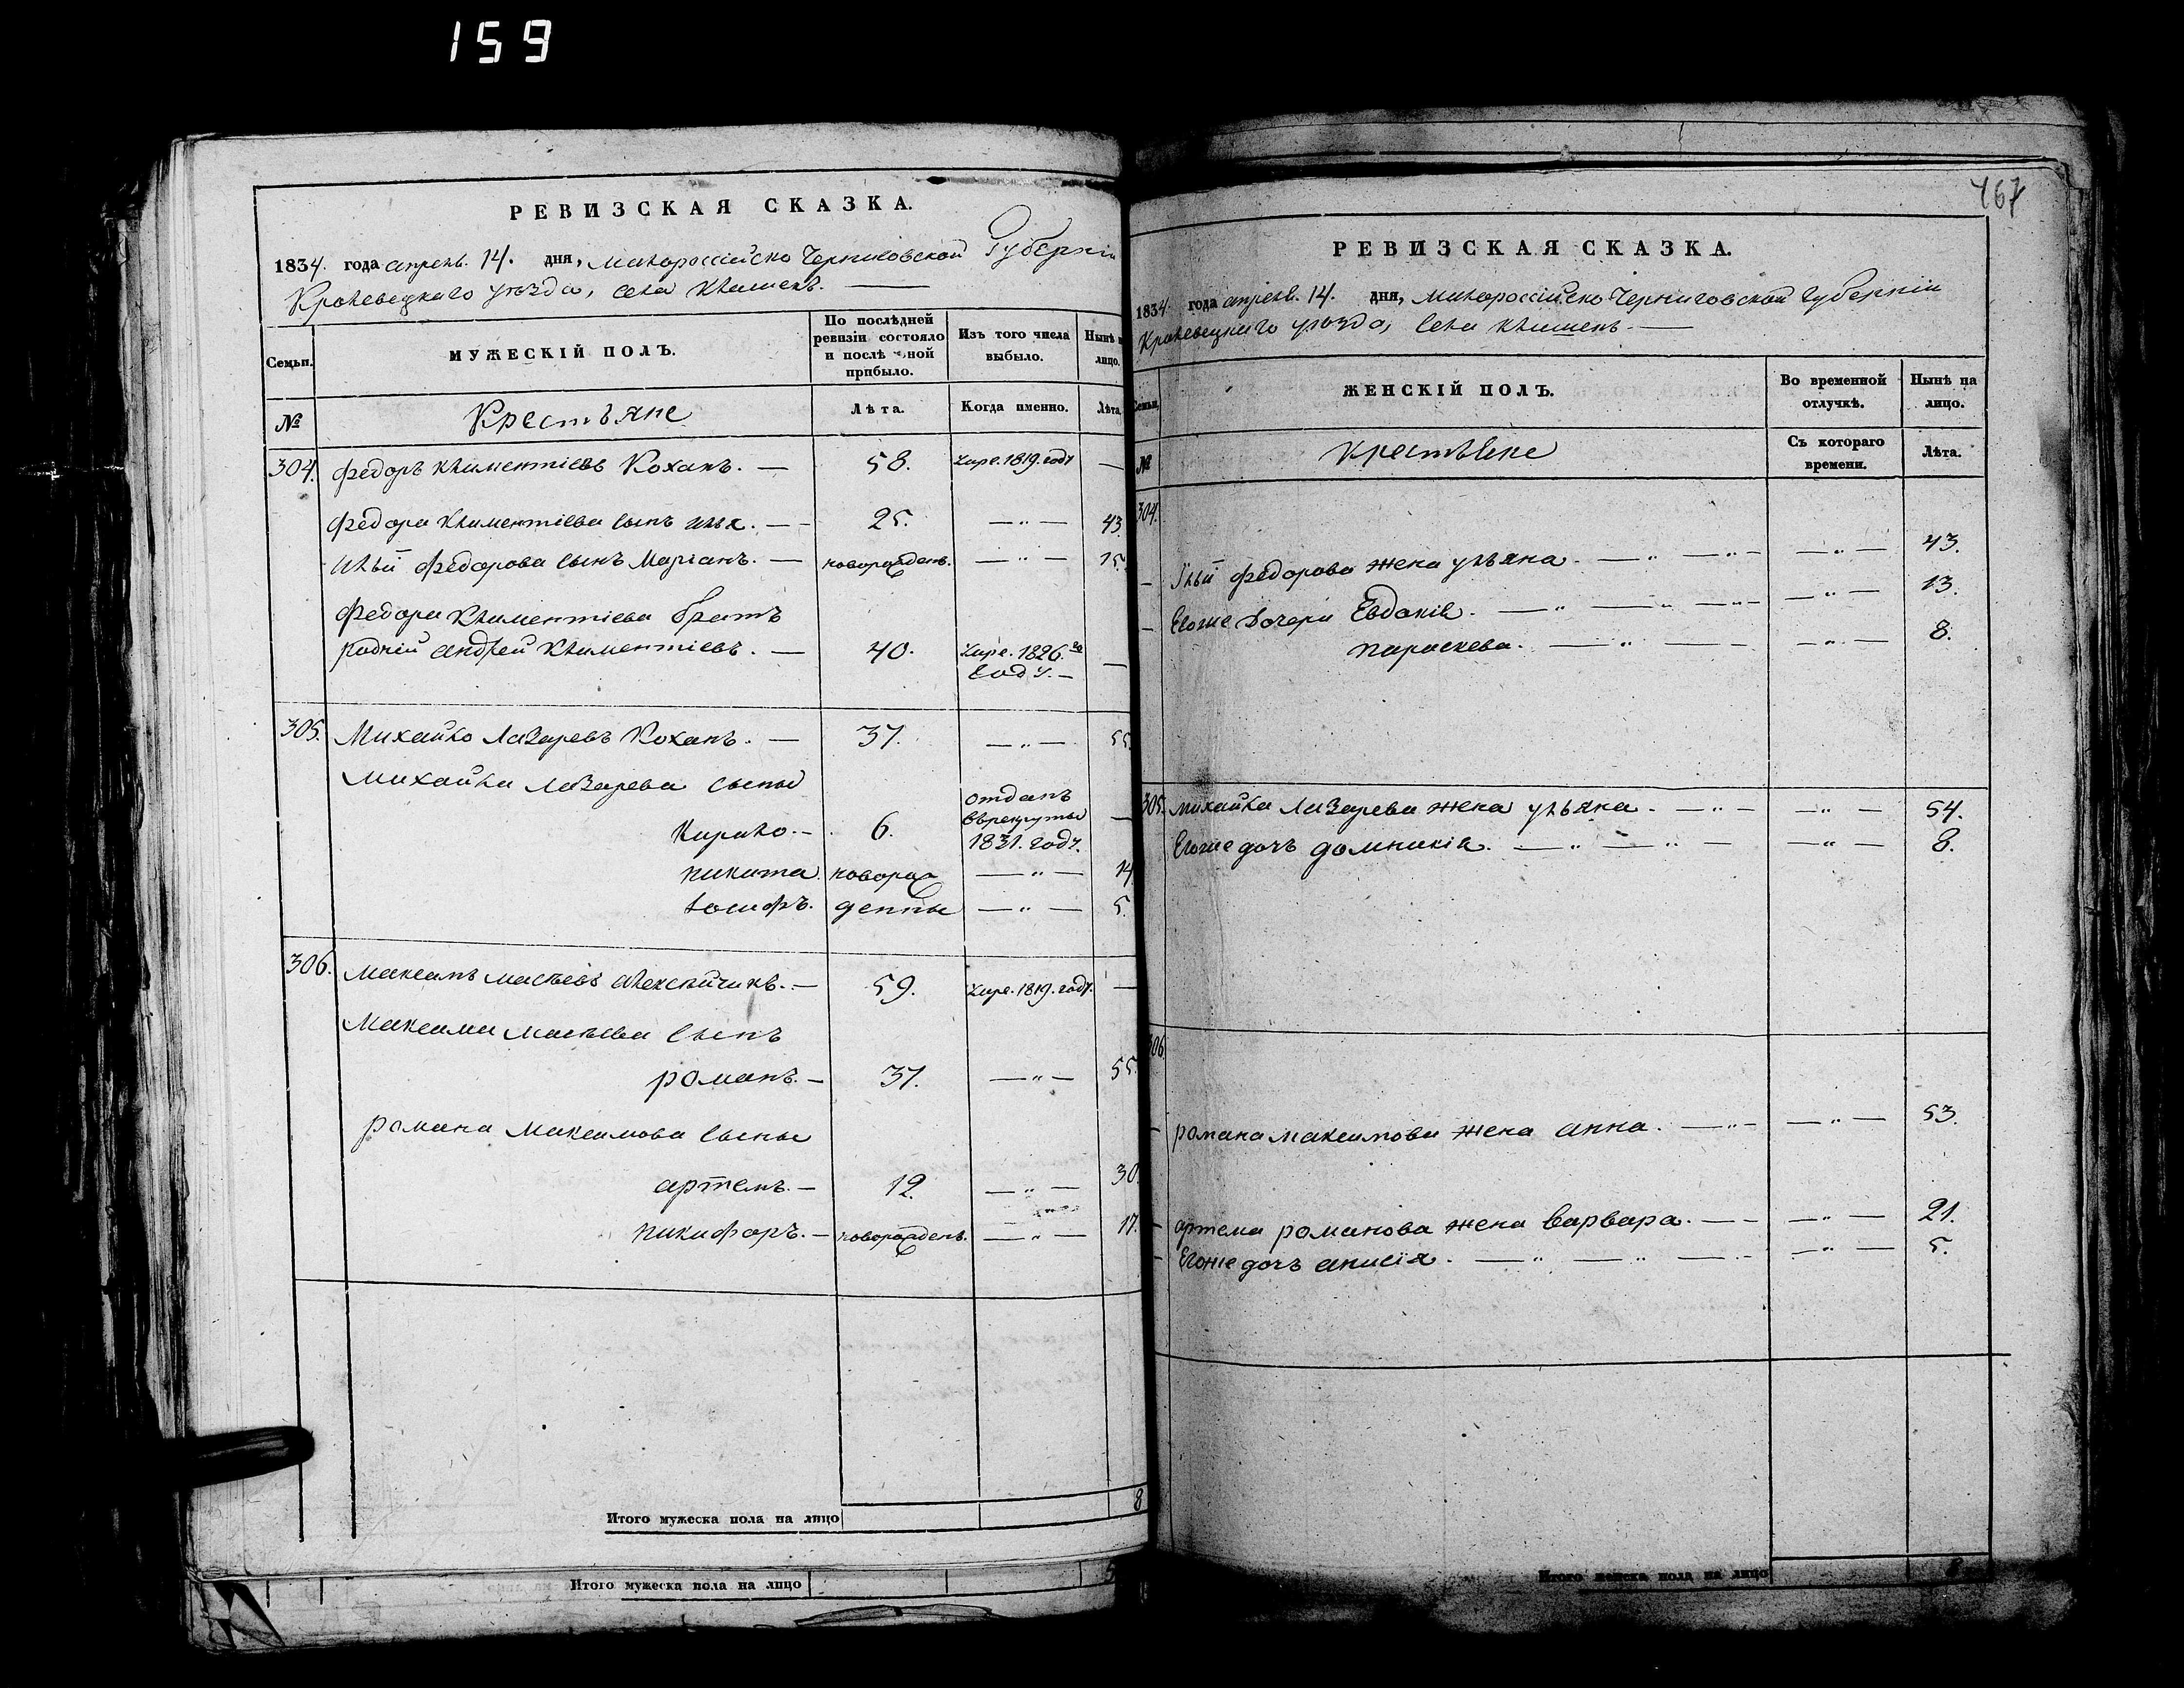 159
РЕВИЗСКАЯ СКАЗКА.
1834. года апреля. 14. дня, Малороссійско Черниговской Губерніи
Кролевецкаго уезда, села Клишекъ.
Семьи.
МУЖЕСКІЙ ПОЛЪ.
По послѣдней ревизіи состояло и послѣ оной прибыло.
Изъ того числа выбыло.
Нынѣ на лицо.
№
Крестьяне
Лѣта.
Когда именно.
Лѣта.
304. Федоръ Климентіевъ Коханъ. — 58. умре. 1819. году —
Федора Климентіева сынъ Илья. — 25. — „ — 43
Ильи Федорова сынъ Маріанъ. — новорожденъ. — „ — 15.
Федора Климентіева братъ
родній андрей Климентіевъ. — 40. умре. 1826.го году. — —
305. Михайло Лазаревъ Коханъ. — 37. — „ — 55.
Михайла Лазарева сыны
Кирило. — 6. отданъ врекруты 1831. году. —
никита. новорож — „ — 14
Іосифъ. денны — „ — 5.
306. Максимъ Алексѣйчикъ. — 59. умре. 1819. году. —
Максима сынъ
романъ. — 37. — „ — 55.
романа Максимова сыны
артемъ. — 12. — „ — 30.
никифоръ. — новорожденъ. — „ — 17.
Итого мужеска пола на лицо 8
Итого мужеска пола на лицо
467
РЕВИЗСКАЯ СКАЗКА.
1834 года апреля. 14. дня, Малороссійско Черниговской губерніи
Кролевецкаго уезда, села клишекъ. —
Семьи.
ЖЕНСКІЙ ПОЛЪ.
Во временной отлучкѣ.
Нынѣ на лицо.
№
крестьяне
Съ котораго времени.
Лѣта.
304.
Ильи федорова жена ульяна. — „ — „ — — „ — 43.
Егоже дочери Евдокія. — „ — „ — „ — — „ — 13.
параскева. — „ — — — „ — 8.
305. михайла Лазарева жена ульяна. — „ — — „ — 54.
Егоже дочь домникія. — „ — „ — — „ — 8.
306.
романа максимова жена анна. — „ — — „ — 53.
артема романова жена варвара. — - — „ — 21.
Егоже дочь анисія. — „ — „ — - — „ — 5.
Итого женска пола на лицо 8